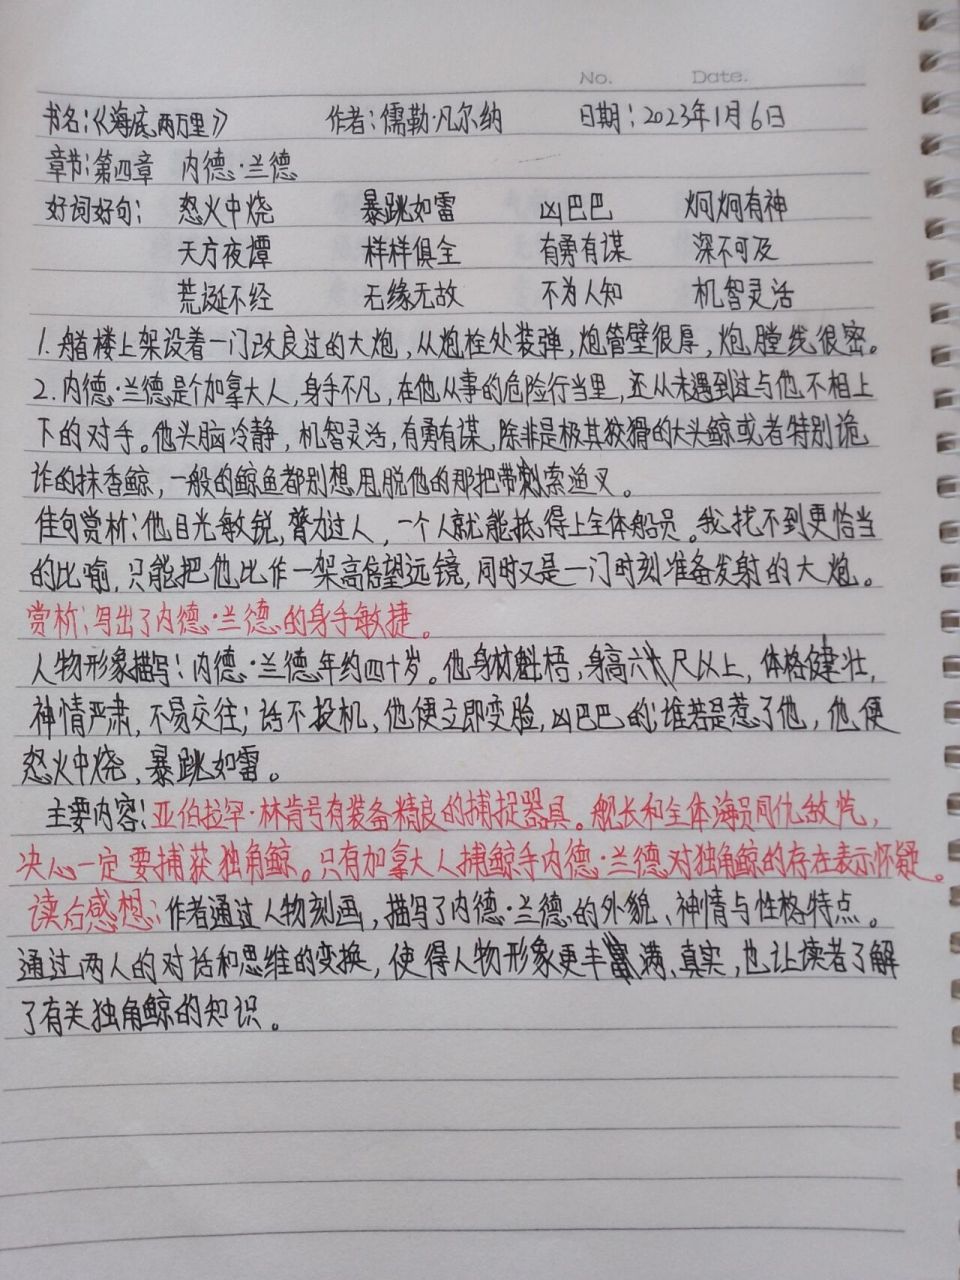 No. Date.
书名:《海底两万里》 作者:儒勒·凡尔纳 日期:2023年1月6日
章节:第四章 内德·兰德
好词好句: 怒火中烧 暴跳如雷 凶巴巴 炯炯有神
天方夜谭 样样俱全 有勇有谋 深不可及
荒诞不经 无缘无故 不为人知 机智灵活
1.艏楼上架设着一门改良过的大炮,从炮栓处装弹,炮管壁很厚,炮膛线很密。
2.内德·兰德是个加拿大人,身手不凡,在他从事的危险行当里,还从未遇到过与他不相上
下的对手。他头脑冷静,机智灵活,有勇有谋,除非是极其狡猾的大头鲸或者特别诡
诈的抹香鲸,一般的鲸鱼都别想甩脱他的那把带刺索渔叉。
佳句赏析:他目光敏锐,膂力过人,一个人就能抵得上全体船员。我找不到更恰当
的比喻,只能把他比作一架高倍望远镜,同时又是一门时刻准备发射的大炮。
赏析:写出了内德·兰德的身手敏捷。
人物形象描写:内德·兰德年约四十岁。他身材魁梧,身高六尺以上,体格健壮,
神情严肃,不易交往;话不投机、他便立即变脸,凶巴巴的;谁若是惹了他,他便
怒火中烧,暴跳如雷。
主要内容:亚伯拉罕·林肯号有装备精良的捕捉器具。舰长和全体海员同仇敌忾,
决心一定要捕获独角鲸。只有加拿大人捕鲸手内德·兰德对独角鲸的存在表示怀疑。
读后感想:作者通过人物刻画,描写了内德·兰德的外貌、神情与性格特点。
通过两人的对话和思维的变换,使得人物形象更丰满、真实,也让读者了解
了有关独角鲸的知识。